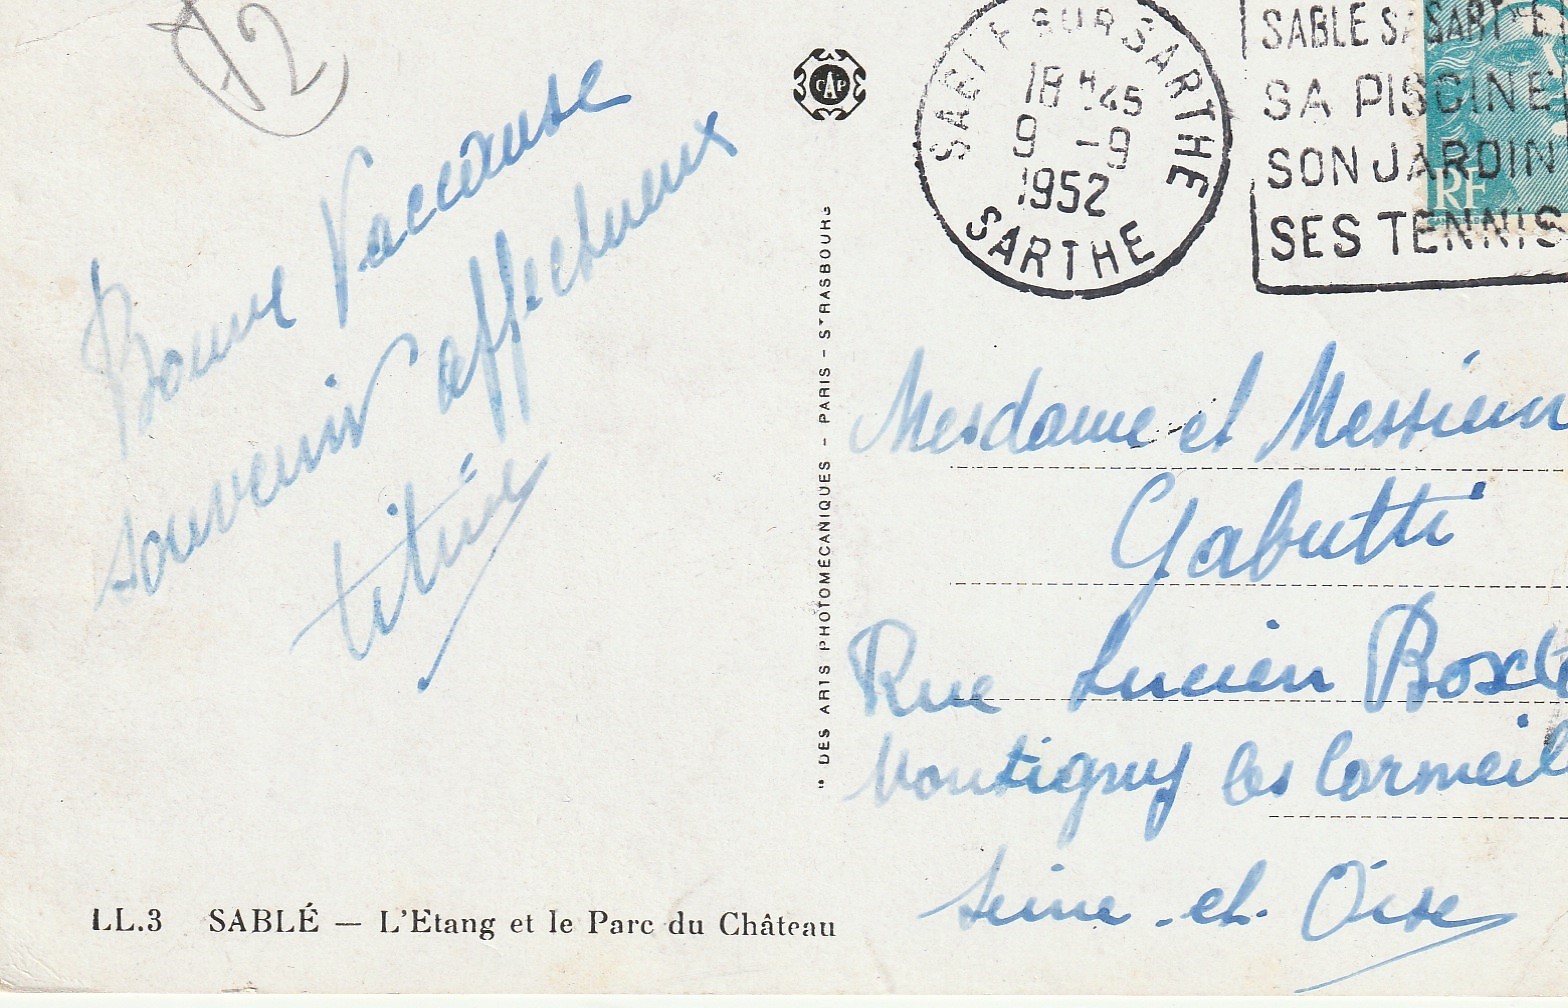 72
Bonne Vaccance
souvenir affectueux
titine
CAP
" DES ARTS PHOTOMÉCANIQUES - PARIS - STRASBOURG
SABLE SUR SARTHE
18H45
9 -9
1952
SARTHE
SABLE S/ SARTHE
SA PISCINE
SON JARDIN
SES TENNIS
RF
Mesdame et Messieur
Gabutti
Rue Lucien
Montigny les Cormeil
Seine-et-Oise
LL.3 SABLÉ — L'Etang et le Parc du Château